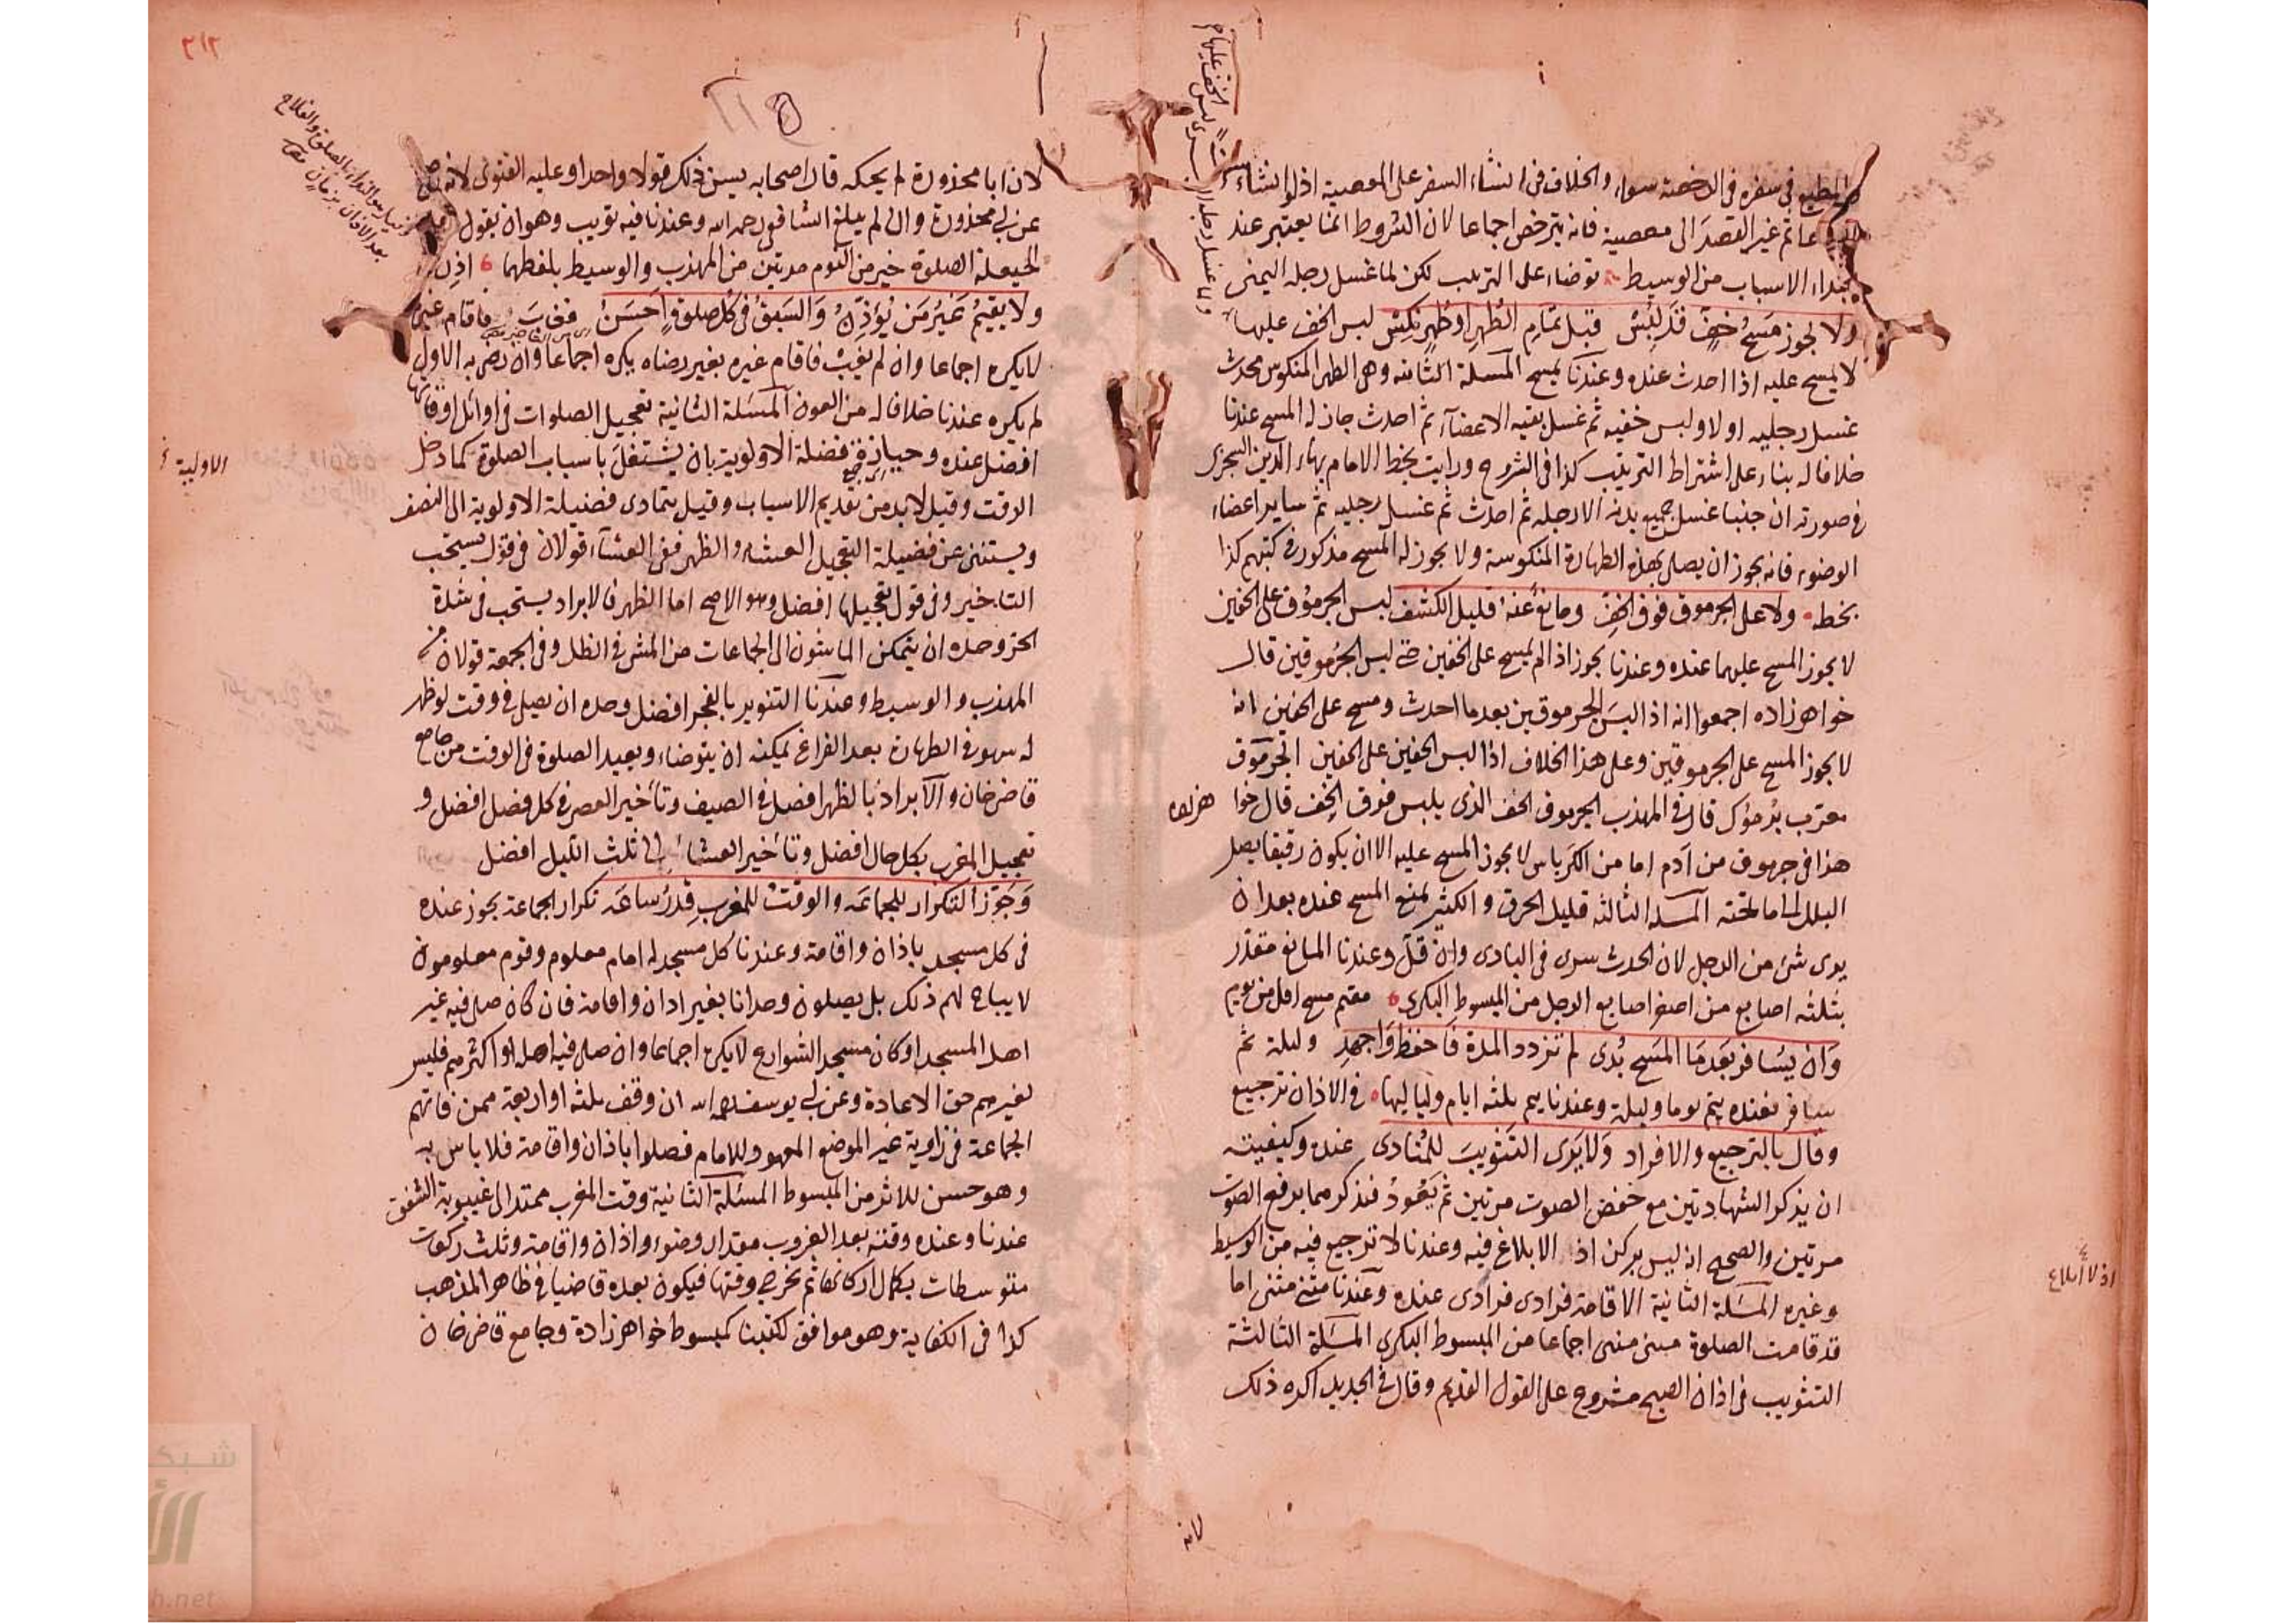 في سفره في الرخصة سواء والخلاف في انشاء السفر على المعصية اذ لو انشاء
ثم غير القصد الى معصية فانه يترخص اجماعا لان الشروط انما يعتبر عند
ابتداء الاسباب من الوسيط توضاء على الترتيب لكن لما غسل رجله اليمنى
ولا يجوز مسح خف قد لبس قبل تمام الطهر او طهر نكس لبس الخف عليها
لا يمسح عليه اذا احدث عنده وعندنا يمسح المسئلة الثانية وهي الطهر المنكوس محدث
غسل رجليه اولا ولبس خفيه ثم غسل بقية الاعضاء ثم احدث جاز له المسح عندنا
خلافا له بناء على اشتراط الترتيب كذا في الشروح ورايت بخط الامام بهاء الدين
في صورته ان جنبا غسل جميع بدنه الا رجله ثم احدث ثم غسل رجليه ثم ساير اعضاء
الوضوء فانه يجوز ان يصلي بهذه الطهارة المنكوسة ولا يجوز له المسح مذكور في كتبهم كذا
بخطه ولا على الجرموق فوق الخف ومانع عنه قليل الكشف لبس الجرموق على الخفين
لا يجوز المسح عليهما عنده وعندنا يجوز اذا لم يمسح على الخفين حتى لبس الجرموقين قال
خواهر زاده اجمعوا انه اذا لبس الجرموقين بعد ما احدث ومسح على الخفين انه
لا يجوز المسح على الجرموقين وعلى هذا الخلاف اذا لبس الخفين على الخفين الجرموق
معرب قال في المهذب الجرموق الخف الذي يلبس فوق الخف قال خوا
هذا في جرموق من آدم اما من الكرباس لا يجوز المسح عليه الا ان يكون رقيقا يصل
البلل الى ما تحته المسئلة الثالثة قليل الخرق والكثير يمنع المسح عنده بعد ان
يرى شئ من الرجل لان الحدث سرى في البادى وان قل وعندنا المانع مقدر
بثلثه اصابع من اصغر اصابع الرجل من المبسوط البكرى مقيم مسح اقل من يوم
وان يسافر بعد ما المسح بدى لم تزدد المدة فاحفظ واجهد وليلة ثم
سافر فعنده يتم يوما وليلة وعندنا يتم ثلثه ايام ولياليها في الاذان ترجيع
وقال بالترجيع والافراد ولا يرى التثويب للمنادى عنده وكيفيته
ان يذكر الشهادتين مع خفض الصوت مرتين ثم يعود فيذكرهما برفع الصوت
مرتين والصحيح انه ليس بركن اذ الابلاغ فيه وعندنا لا ترجيع فيه من الوسيط
وغيره المسئلة الثانية الاقامة فرادى فرادى عنده وعندنا مثنى مثنى اما
قد قامت الصلوة مثنى مثنى اجماعا من المبسوط البكرى المسئلة الثالثة
التثويب في اذان الصبح مشروع على القول القديم وقال في الجديد اكره ذلك
اذ لا ابلاغ
لان
٢١٢
لان ابا محذورة لم يحكه قال اصحابه يسن ذلك قولا واحدا وعليه الفتوى لانه صح
عن ابي محذورة وان لم يبلغ الشافعي رحمه الله وعندنا فيه تويب وهو ان يقول
الحيعلة الصلوة خير من النوم مرتين من المهذب والوسيط بلفظهما اذن
ولا يقيم غير من يؤذن والسبق في كل صلوة احسن فغاب فاقام غيره
لا يكره اجماعا وان لم يغب فاقام غيره بغير رضاه يكره اجماعا وان رضى به الاول
لم يكره عندنا خلافا له من العون المسئلة الثانية تعجيل الصلوات في اوائل اوقاتها
افضل عنده وحيازة فضلة الاولوية بان يشتغل باسباب الصلوة كما دخل
الوقت وقيل لابد من تقديم الاسباب وقيل يتمادى فضيلة الاولوية الى النصف
ويستثنى عن فضيلة التعجيل العشاء والظهر ففي العشاء قولان في قول يستحب
التاخير وفي قول تعجيلها افضل وهو الاصح اما الظهر فالابراد يستحب في شدة
الحر وحده ان يتمكن الماشون الى الجماعات من المشي في الظل وفي الجمعة قولان من
المهذب والوسيط وعندنا التنوير بالفجر افضل وحده ان يصلي في وقت لو ظهر
له سهو في الطهارة بعد الفراغ يمكنه ان يتوضاء ويعيد الصلوة في الوقت من جامع
قاضي خان والابراد بالظهر افضل في الصيف وتأخير العصر في كل فصل افضل و
تعجيل المغرب بكل حال افضل وتأخير العشاء الى ثلث الليل افضل
وجوز التكرار للجماعة والوقت للمغرب قدر ساعة تكرار الجماعة يجوز عنده
في كل مسجد باذان واقامة وعندنا كل مسجد له امام معلوم وقوم معلومون
لا يباح لهم ذلك بل يصلون وحدانا بغير اذان واقامة فان كان صلى فيه غير
اهل المسجد او كان مسجد الشوارع لا يكره اجماعا وان صلى فيه اهله او اكثرهم فليس
لغيرهم حق الاعادة وعن ابي يوسف رحمه الله ان وقف ثلثه او اربعة ممن فاتهم
الجماعة في زاوية غير الموضع المعهود للامام فصلوا باذان واقامة فلا باس به
وهو حسن للاثر من المبسوط المسئلة الثانية وقت المغرب ممتد الى غيبوبة الشفق
عندنا وعنده وقته بعد الغروب مقدار وضوء واذان واقامة وثلث ركعات
متوسطات بكمال اركانها ثم يخرج وقتها فيكون بعده قاضيا في ظاهر المذهب
كذا في الكفاية وهو موافق لكتبنا كمبسوط خواهر زادة وجامع قاضي خان
الاولية